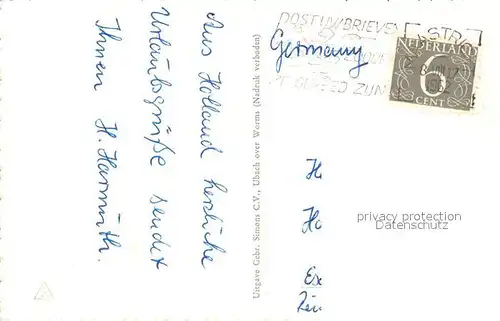 Aus Holland herzliche
Urlaubsgrüße sendet
Ihnen H. Harmuth.
Uitgave Gebr. Simons C.V., Ubach over Worms (Nadruk verboden)
POST UW BRIEVEN
Germany
NEDERLAND
6
CENT
H
Ho
privacy protection
Datenschutz